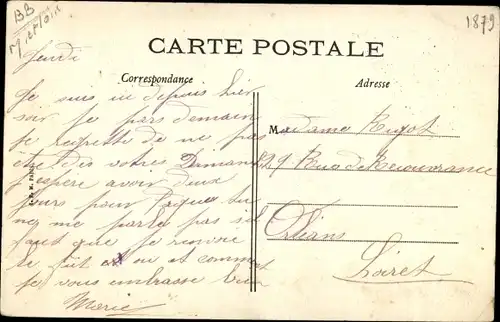 BB
1879
CARTE POSTALE
Correspondance
Adresse
Jeudi
Je suis ici depuis hier
soir je pars demain
je regrette de ne pas
être des vôtres Dimanche
j'espère avoir deux
jours pour Pâques tu
ne me parle pas s'il
faut que je renvoie
le fût ou et comment
je vous embrasse bien
Marie
Madame Rigot
29 Rue de Recouvrance
Orléans
Loiret